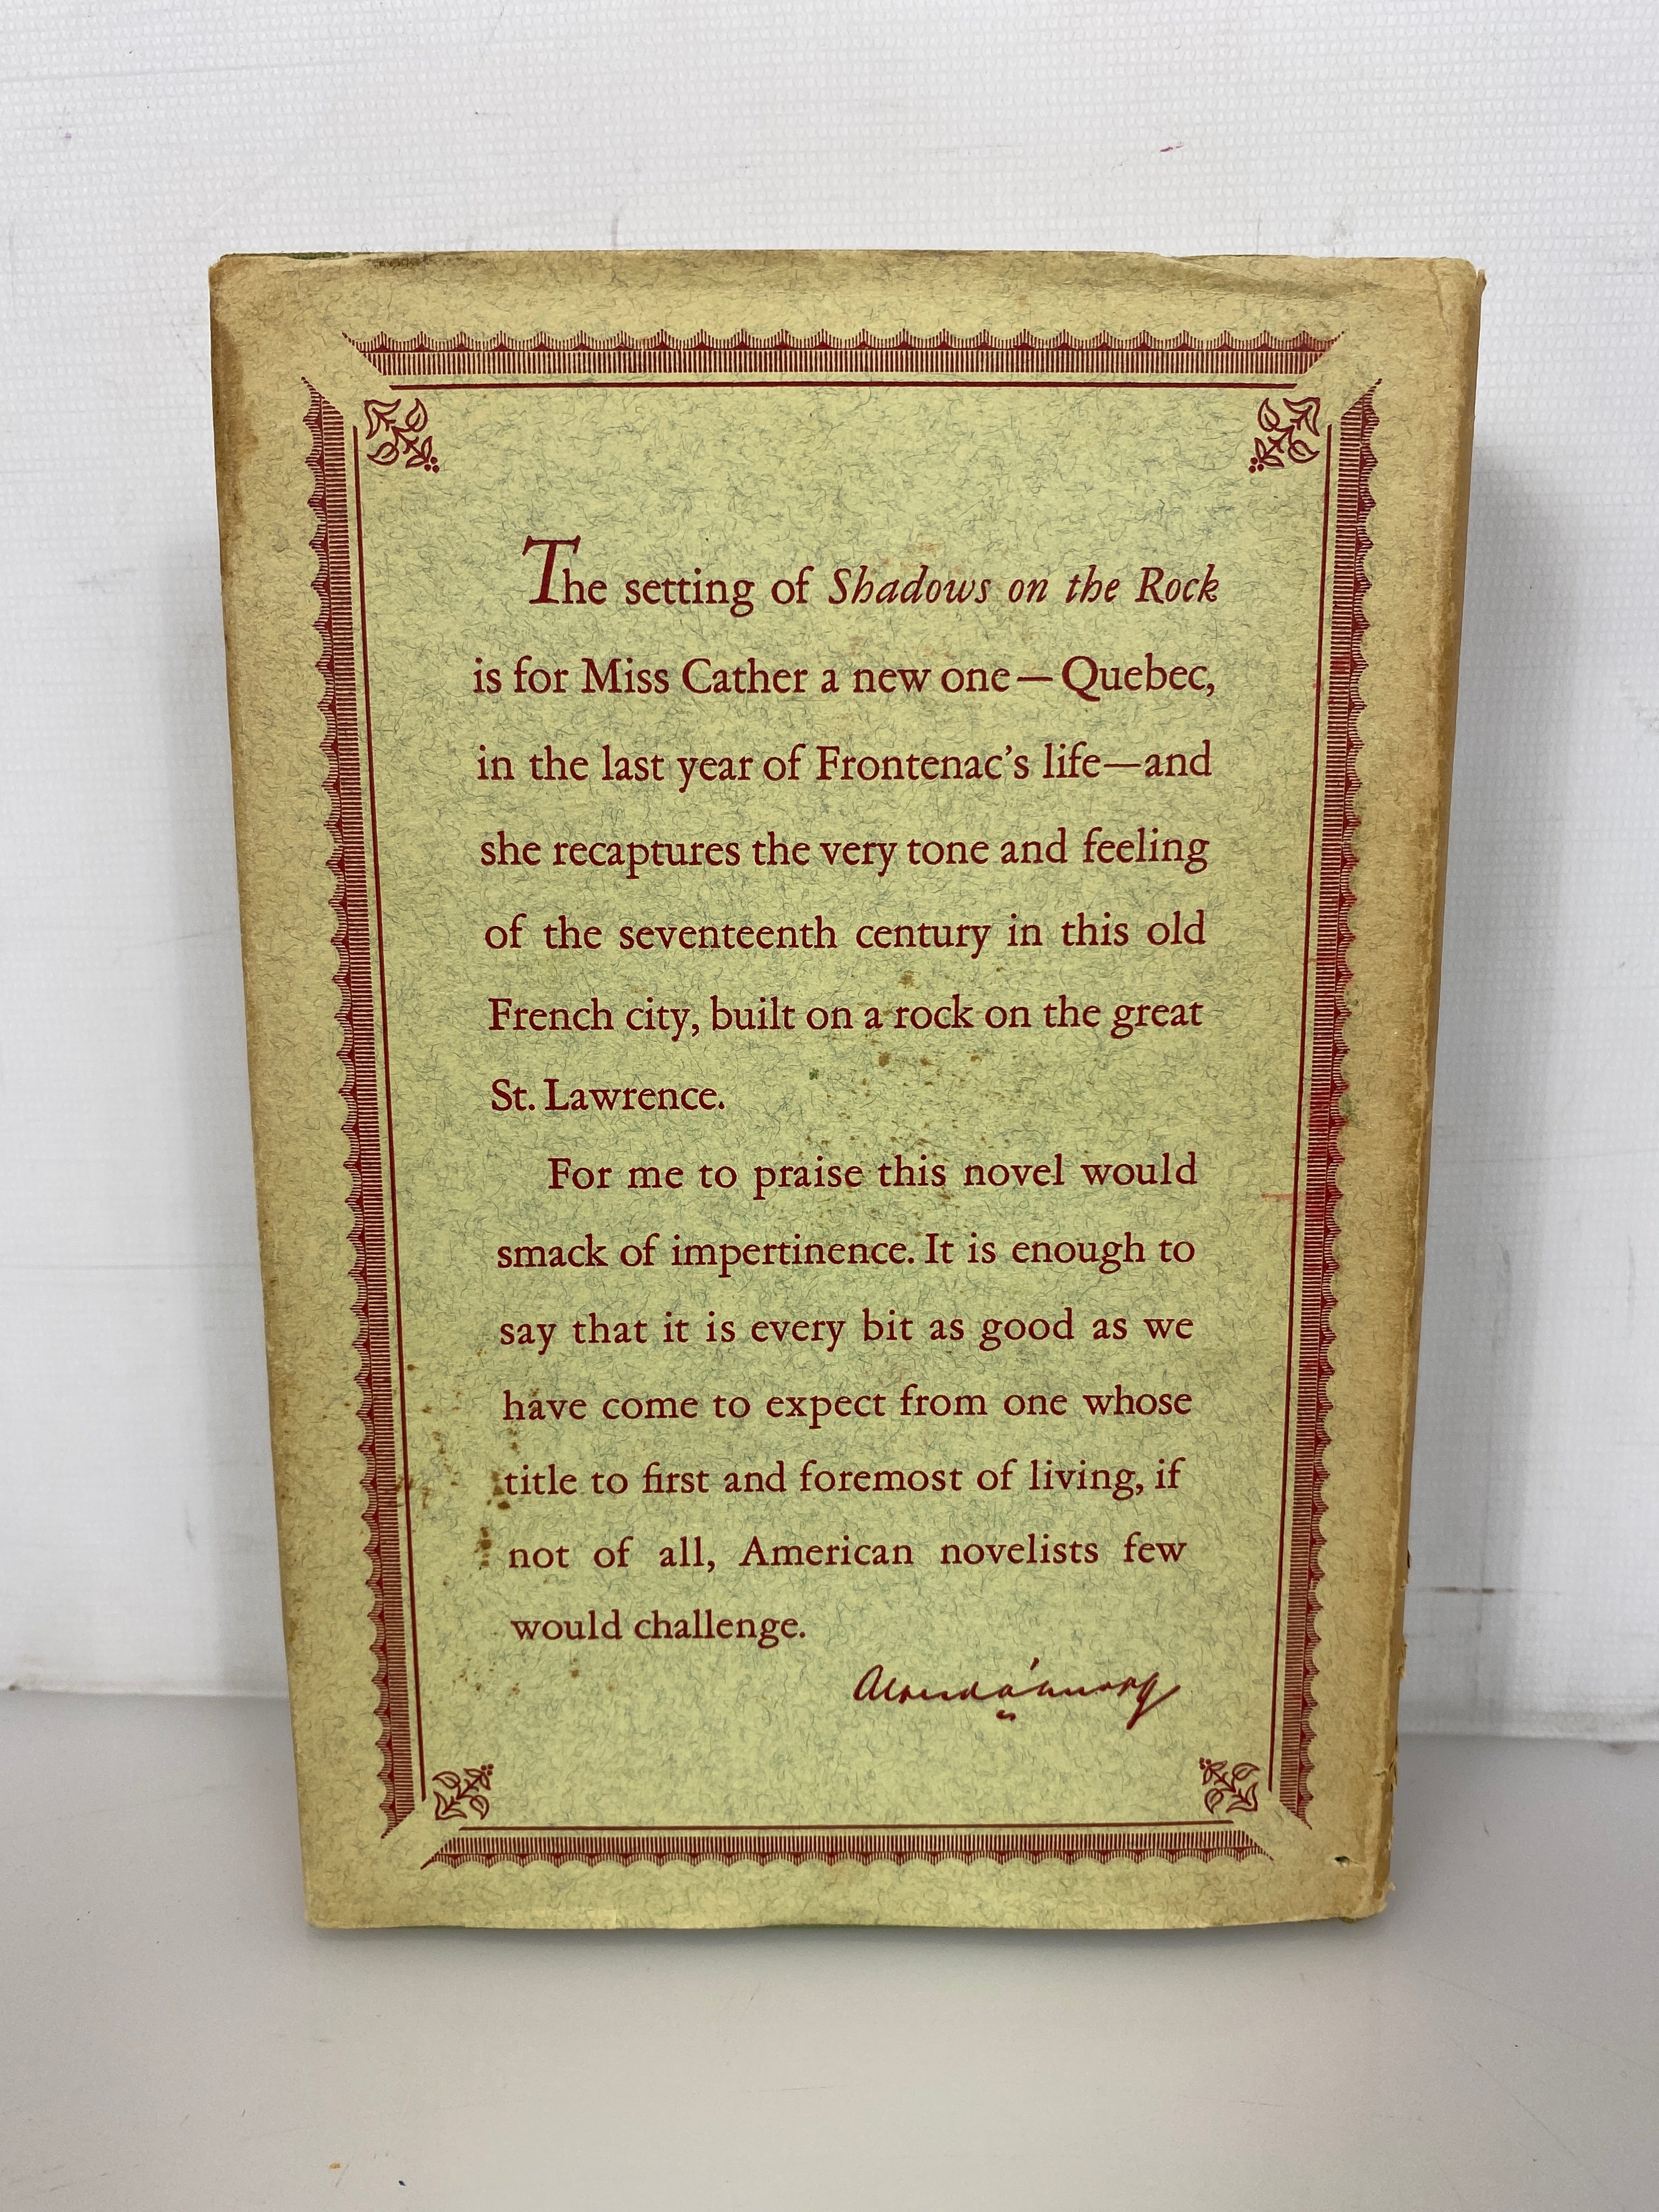 The setting of Shadows on the Rock
is for Miss Cather a new one—Quebec,
in the last year of Frontenac's life—and
she recaptures the very tone and feeling
of the seventeenth century in this old
French city, built on a rock on the great
St. Lawrence.
For me to praise this novel would
smack of impertinence. It is enough to
say that it is every bit as good as we
have come to expect from one whose
title to first and foremost of living, if
not of all, American novelists few
would challenge.